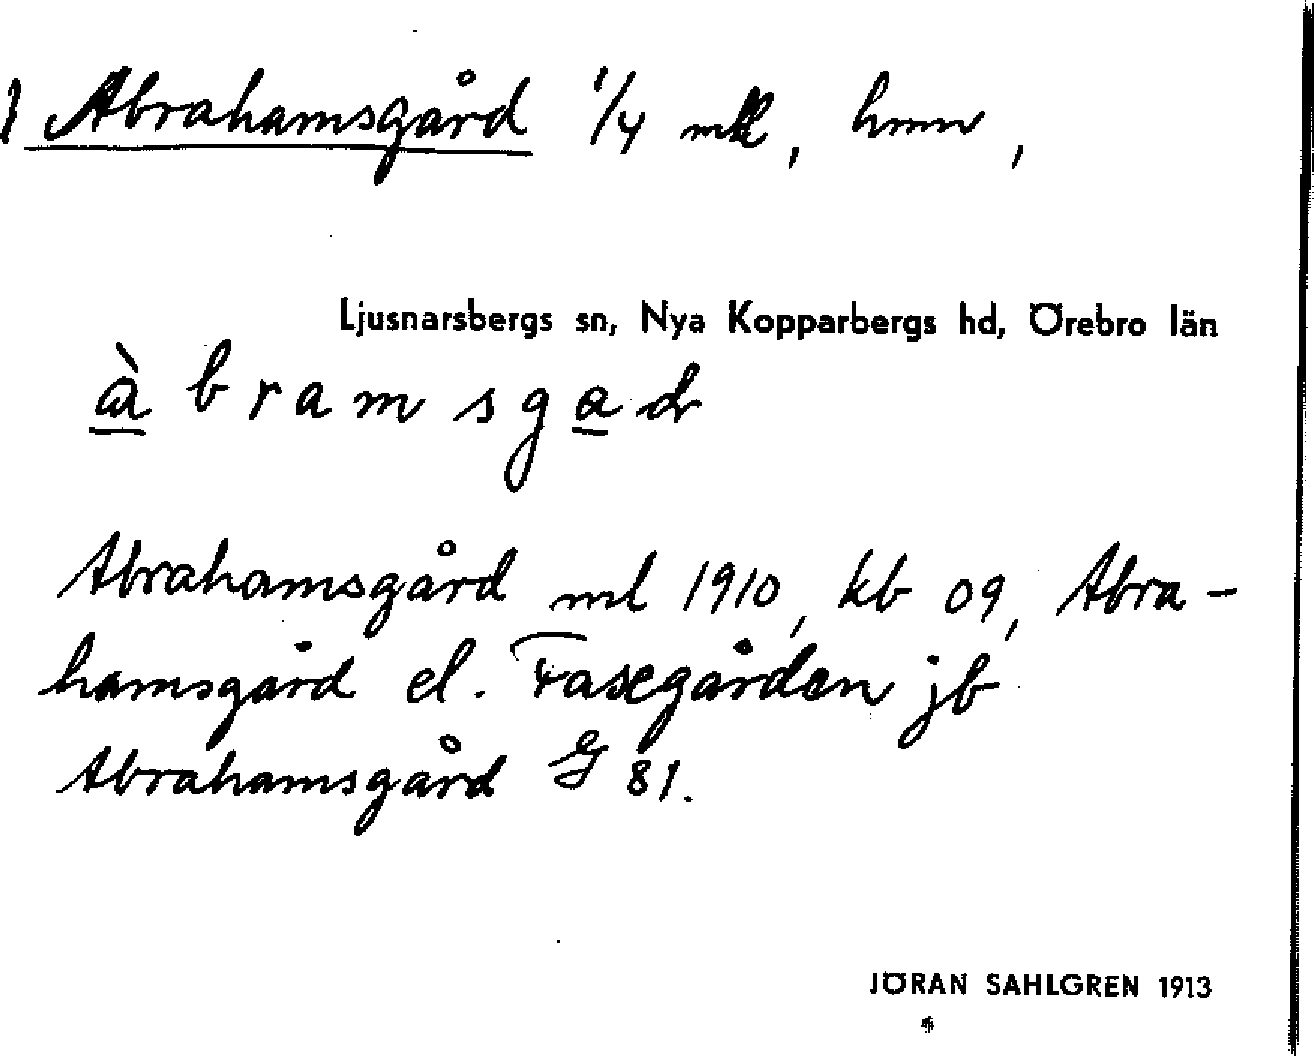 1 Abrahamsgård 1/4 mtl, hmn,
Ljusnarsbergs sn, Nya Kopparbergs hd, Örebro län
à bramsgad
Abrahamsgård ml 1910, kb 09, Abra-
hamsgård el. Fasegården jb
Abrahamsgård G 81.
JÖRAN SAHLGREN 1913